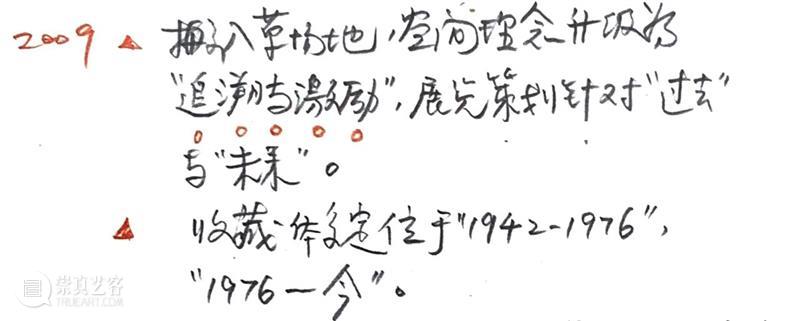 2009 ▲ 搬入草场地，空间理念升级为
"追溯与激励"，展览策划针对"过去"
与"未来"。
▲ 收藏体系定位于"1942-1976"，
"1976—今"。
崇真艺客
TRUEART.COM